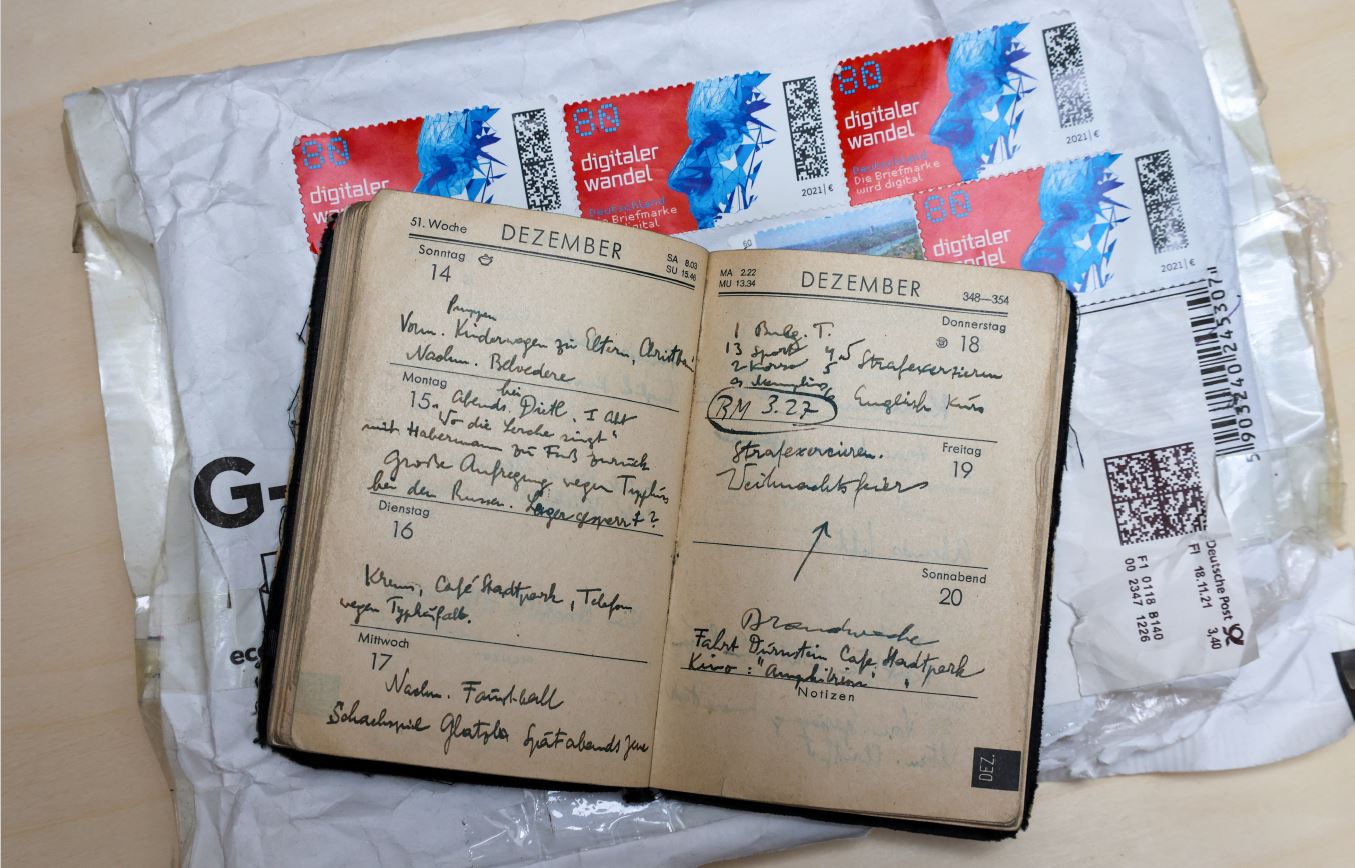 80
digitaler
80
digitaler
wandel
Deutschland
Die Briefmarke
2021 | €
80
digitaler
wandel
Deutschland
Die Briefmarke
wird digital
2021 | €
80
digitaler
2021 | €
60
51. Woche
DEZEMBER
SA 8.03
SU 15.46
Sonntag
14
Puppen
Vorm. Kinderwagen zu Eltern,
Nachm. Belvedere
Montag
15
bei
Abends Dietl. I Akt
"Wo die Lerche singt"
mit Habermann zu Fuß zurück
Große Aufregung wegen Typhus
bei den Russen. Lager gesperrt?
Dienstag
16
Krems, Café Stadtpark, Telefon
wegen Typhusfalls.
Mittwoch
17
Nachm. Faustball
Schachspiel Spätabends
MA 2.22
MU 13.34
DEZEMBER
348—354
Donnerstag
18
1 T.
13 Sport 45 Strafexerzieren
2 5
Englisch Kurs
RM 3.27
Freitag
19
Strafexerzieren.
Weihnachtsfeier
Sonnabend
20
Brandwache
Fahrt Dürnstein Cafe Stadtpark
Kino: "Amphitrion"
Notizen
DEZ.
G-
Deutsche Post
FI 18.11.21
3,40
F1 0118 B140
00 2347 1226